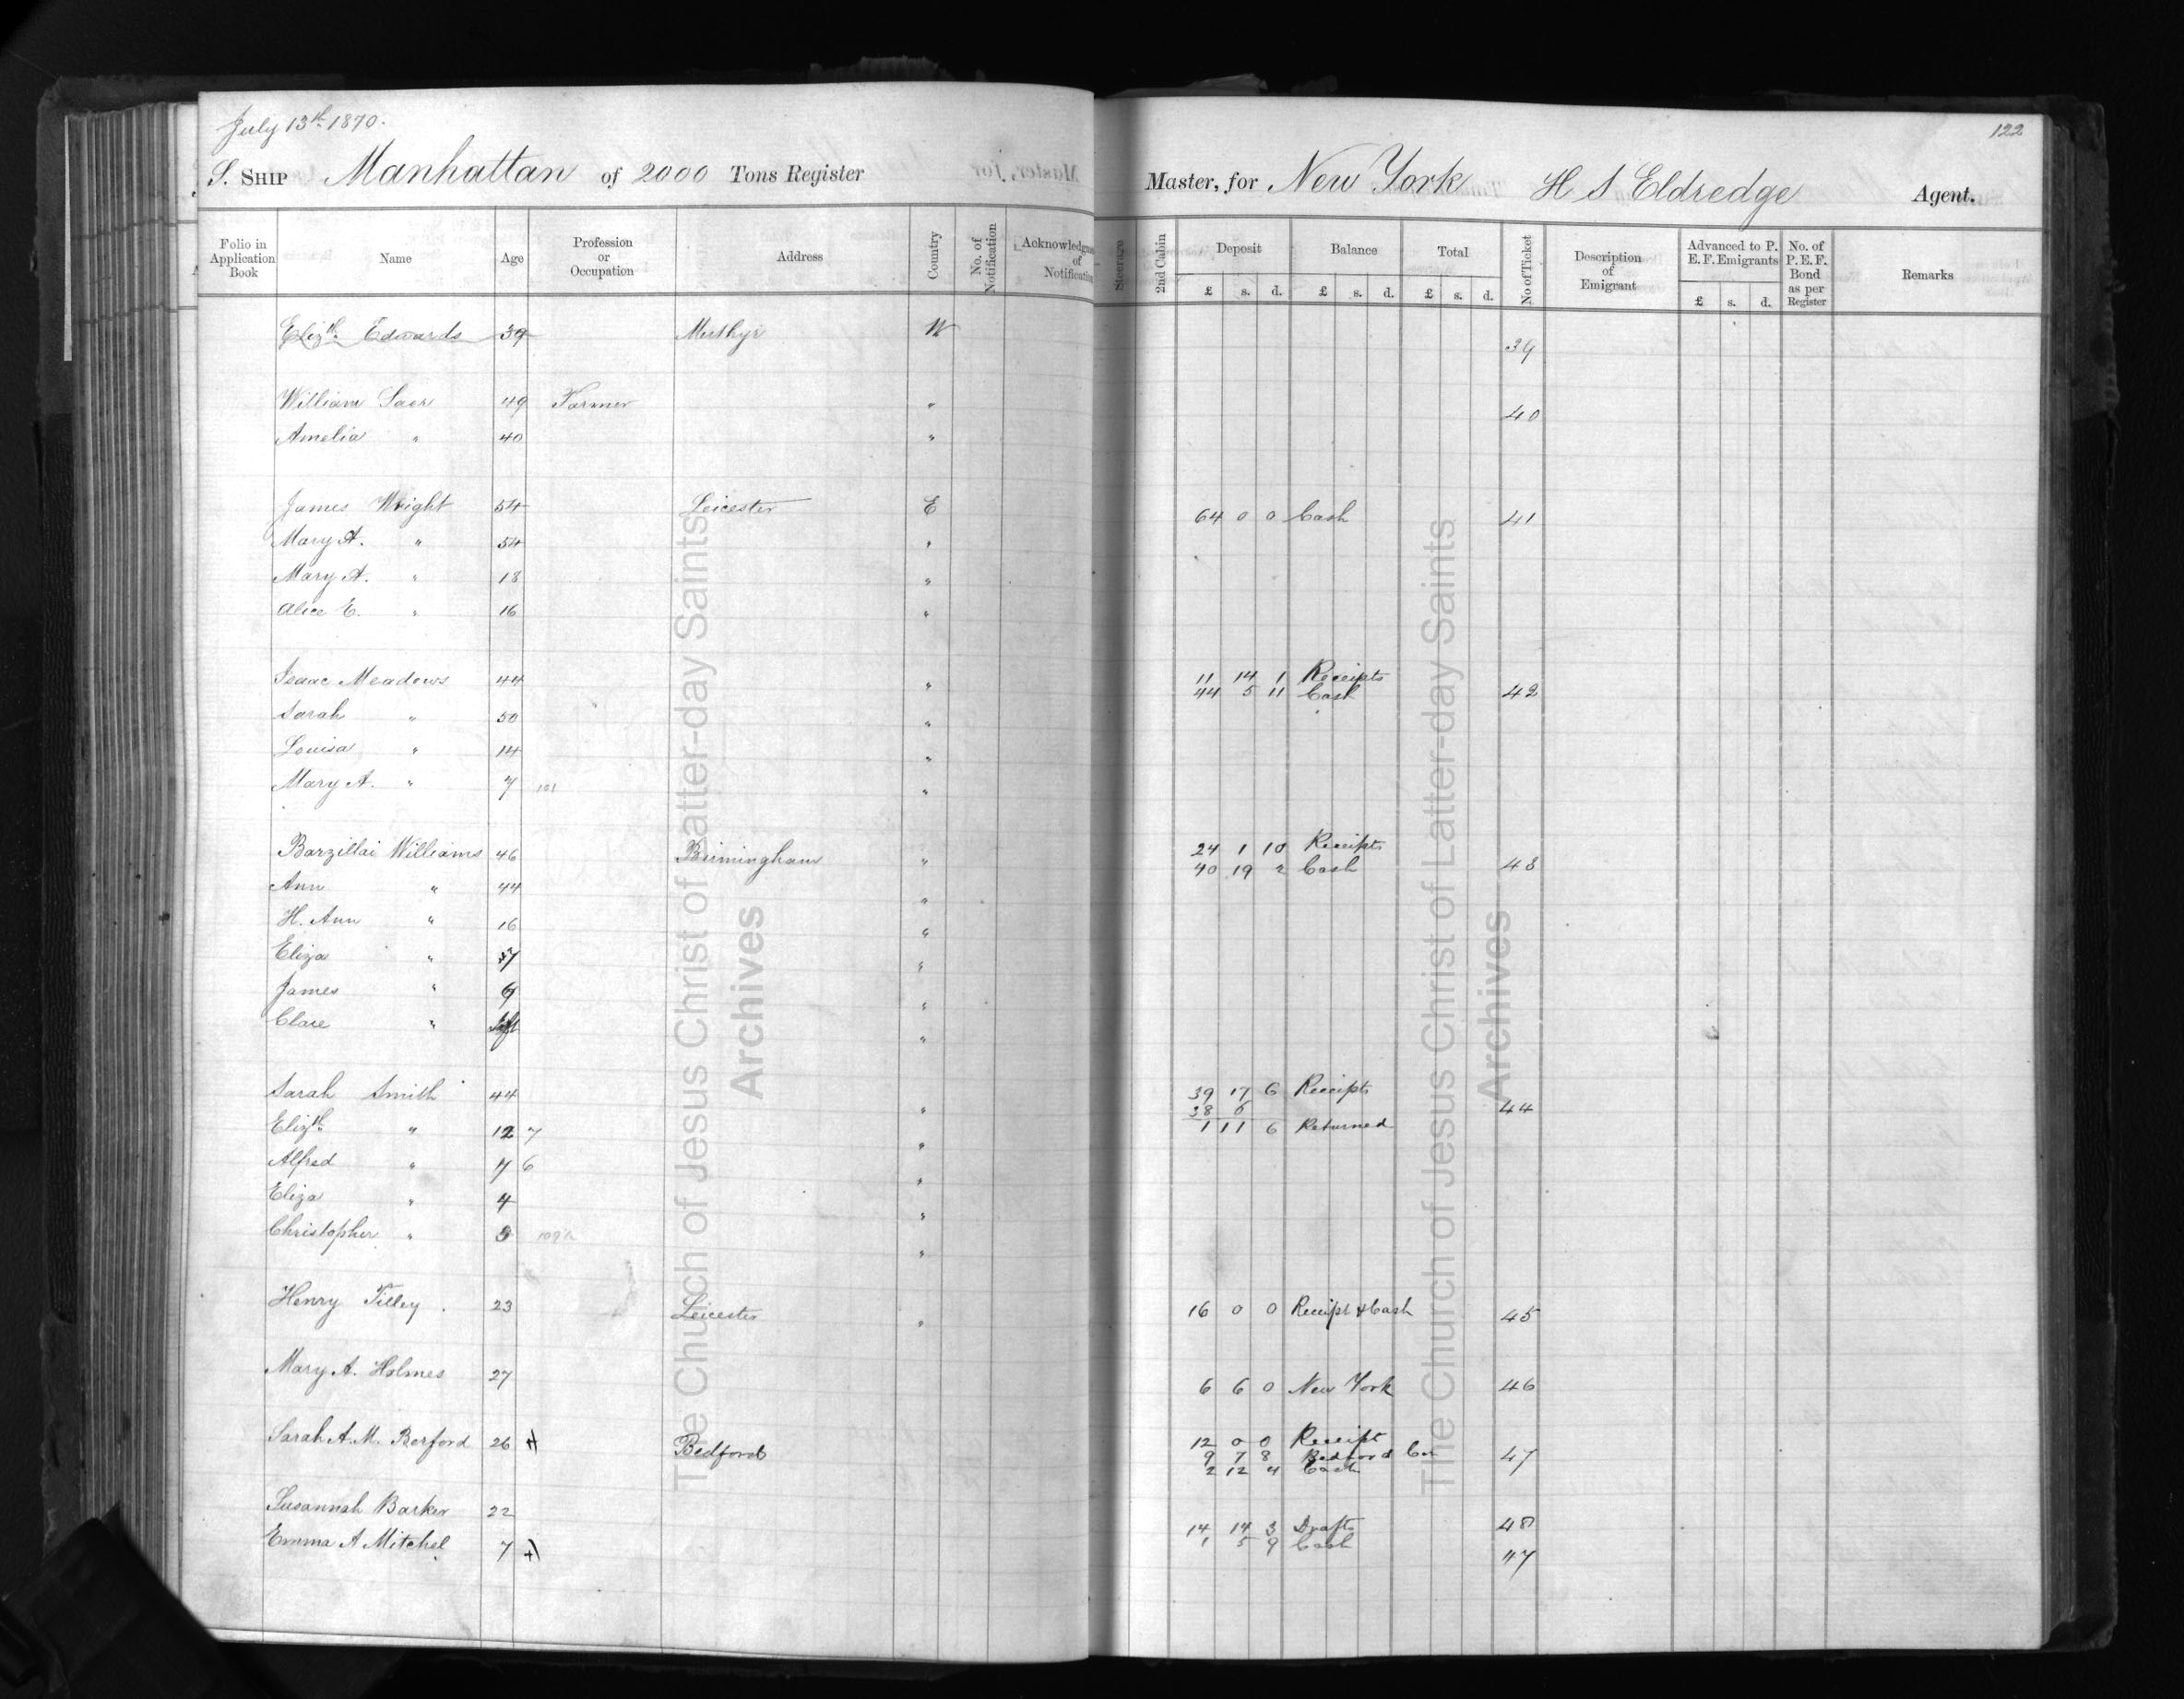 July 13th 1870.
122
S. Ship Manhattan of 2000 Tons Register Master, for New York H S Eldredge Agent.
Folio in Application Book Name Age Profession or Occupation Address Country No. of Notification Acknowledgm of Notification Steerage 2nd Cabin Deposit £ s. d. Balance £ s. d. Total £ s. d. No of Ticket Description of Emigrant Advanced to P. E. F. Emigrants £ s. d. No. of P. E. F. Bond as per Register Remarks
Elizth Edwards 39 Merthyr W 39
William Saer 49 Farmer " 40
Amelia " 40 "
James Wright 54 Leicester E 64 0 0 Cash 41
Mary A. " 54 "
Mary A. " 18 "
Alice E. " 16 "
Isaac Meadows 44 " 11 14 1 Receipts
44 5 11 Cash 42
Sarah " 50 "
Louisa " 14 "
Mary A. " 7 101 "
Barzillai Williams 46 Birmingham " 24 1 10 Receipts
40 19 2 Cash 43
Ann " 44 "
H. Ann " 16 "
Eliza " 7 "
James " "
Clare " "
Sarah Smith 44 " 39 17 6 Receipts
38 6 44
Elizth " 12 7 " 1 11 6 Returned
Alfred " 7 6 "
Eliza " 4 "
Christopher " "
Henry Tilley 23 Leicester " 16 0 0 Receipt & Cash 45
Mary A. Holmes 27 6 6 0 New York 46
Sarah A. M. Berford 26 Bedford 12 0 0 Receipt
9 7 8 Bedford 47
2 12 4 Cash
Susannah Barker 22 14 14 3 Drafts 48
Emma A Mitchel 7 1 5 9 Cash 47
The Church of Jesus Christ of Latter-day Saints
Archives
The Church of Jesus Christ of Latter-day Saints
Archives